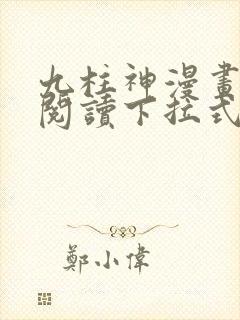 九柱神漫畫
閱讀下拉式
鄭小偉